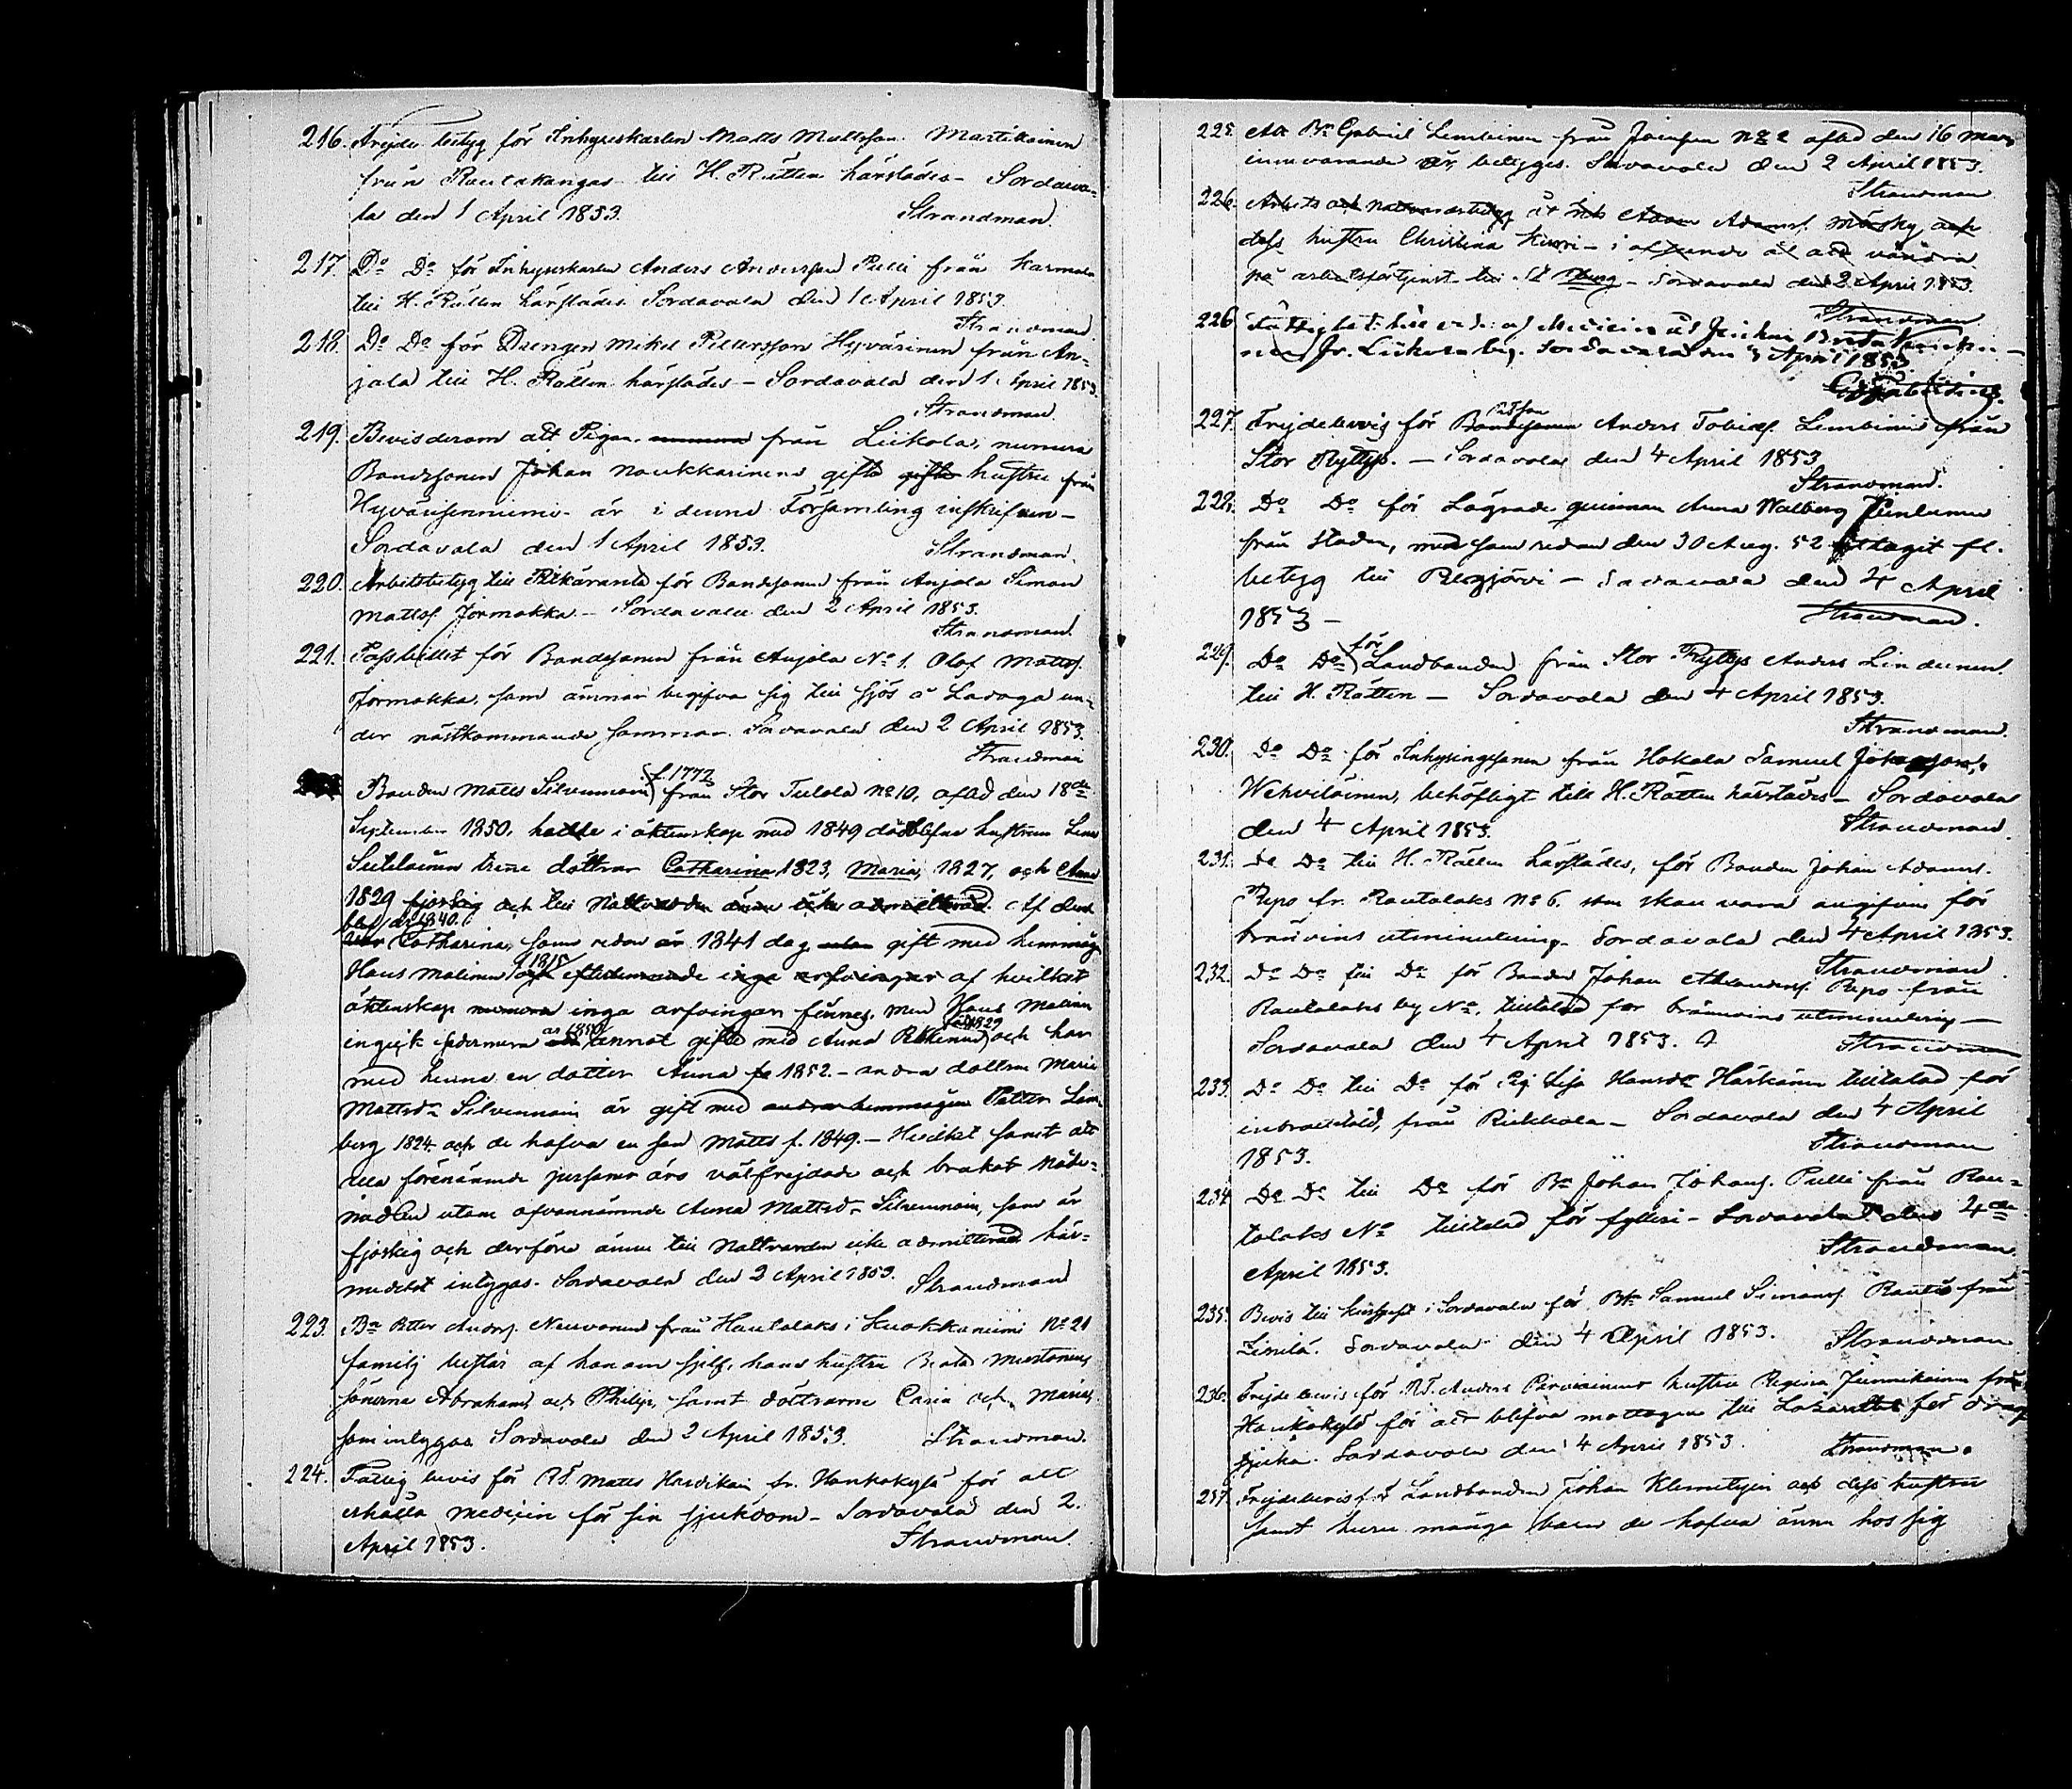 216. Frejde betyg för Inhyseskarlen Matts Mattsson Martikainen
från Rautakangas till H. Rätten härstädes - Sordava-
la den 1 April 1853. Strandman.
217. Do Do för Inhyseskarlen Anders Andersson Pulli från Karmala
till H. Rätten härstädes Sordavala den 1 April 1853.
Strandman
218. Do Do för Drengen Mikel Pettersson Hyvärinen från An-
jala till H. Rätten härstädes - Sordavala den 1 April 1853.
Strandman.
219. Bevis derom att Pigan från Liikola, numera
Bondesonen Johan Naukkarinens gifta gifta hustru från
är i denna Församling inskrifven -
Sordavala den 1 April 1853. Strandman.
220. Arbetsbetyg till Pitkäranta för Bondesonen från Anjala Simon
Mattss. Jormakka - Sordavala den 2 April 1853.
Strandman.
221. Passbillet för Bondesonen från Anjala No 1. Olof Mattss.
Jormakka, som ämnar begifva sig till sjös å Ladoga un-
der nästkommande sommar. Sordavala den 2 April 1853.
Strandman
Bonden Matts Silvennoin f. 1772 från Stor Tulola No 10, aflid den 18de
September 1850, hade i äktenskap med 1849 dödblefne hustrun Lena
trene döttrar Catharina 1823, Maria, 1827, och Anna
1829 fjoskig och till Nattvarden ännu icke admitterad. Af dem
blef år 1840.
Catharina, som redan är 1841 dog utan gift med hemmåg
Hans Malinen 1815 efterlemnande inga arfvingar af hvilket
äktenskap numera inga arfvingar finnes, men Hans Malinen
ingick sedermera år 1850 annat gifte med Anna född 1829 och har
med henne en dotter Anna fr 1852. - andra dottren Maria
Mattsdr Silvennoin är gift med andra hemmågen Petter Lim-
berg 1824 och de hafva en son Matts f. 1849. - Hvilket samt att
alla förenämnde personer äro välfrejdade och brukat Nåde-
medlen utom ofvannämnde Anna Mattsdr Silvennoin, som är
fjoskig och derföre ännu till Nattvarden icke admitterad här-
medelst intygas. Sordavala den 2 April 1853. Strandman
223. Bn Petter Anderss. Neuvonens från Hautalaks i Kuokkaniemi No 21
familj består af honom sjelf, hans hustru Beata Mustonen,
sönerna Abraham, och Philip, samt döttrarne Caisa och Maria,
som intygas Sordavala den 2 April 1853. Strandman.
224. Fattig bevis för Matts fr. Haukakylä för att
erhålla medicin för sin sjukdom - Sordavala den 2.
April 1853. Strandman.
225. Att Bn Gabriel Lembinen från No 2 aflid den 16 Mars
innevarande år, betygges. Sordavala den 2 April 1853.
Strandman
226. Arbets och nattvardsbetyg åt Adam Adamss. och
dess hustru Christina - i afseende å att vandra
på arbetsförtjenst till St Pburg - Sordavala den 2 April 1853.
Strandman
226 af Medicin åt
Sordavala den 3 April 1853
227. Frejdebevis för Bondesonen Anders Tobiass. Lembinen från
Stor Ryttys. - Sordavala den 4 April 1853
Strandman.
228. Do Do för Lägrade quinnan Anna Walborg
från staden, som redan den 30 Aug. 52 uttagit fl.
betyg till - Sordavala den 4 April
1853 - Strandman.
229. Do Do för Landbonden från Stor Ryttys Anders
till H. Rätten - Sordavala den 4 April 1853.
Strandman.
230. Do Do för Inhysingssonen från Hokala Samuel Johansson,
Wehviläinen, behöfligt till H. Rätten härstädes - Sordavala
den 4 April 1853. Strandman
231. Do Do till H. Rätten härstädes, för Bonden Johan Adamss.
Repo fr. Rautalaks No 6. som skall vara angifven för
brännvins utminutering. Sordavala den 4 April 1853.
Strandman
232. Do Do till Do för Bonden Johan Repo från
Rautalaks by No, tilltalad för brännvins utminutering -
Sordavala den 4 April 1853. Strandman
233. Do Do till Do för Pig. Lisa Hansdr Härkönen tilltalad för
inbrottsstöld, från Riekkola - Sordavala den 4 April
1853. Strandman
234. Do Do till Do för Bn Johan Johanss. Pulli från Rau-
talaks No tilltalad för fylleri - Sordavala den 4de
April 1853. Strandman.
235. Bevis till i Sordavala för Samuel Simonss. Rautio från
Sordavala den 4 April 1853. Strandman
236. Frejdebevis för Anders Parviainens hustru Regina från
Haukakylä för att blifva mottagen till Lazarettet för
sjuka. Sordavala den 4 April 1853. Strandman.
237. Frejdebevis för Landbonden Johan och dess hustru
samt huru många barn de hafva ännu hos sig